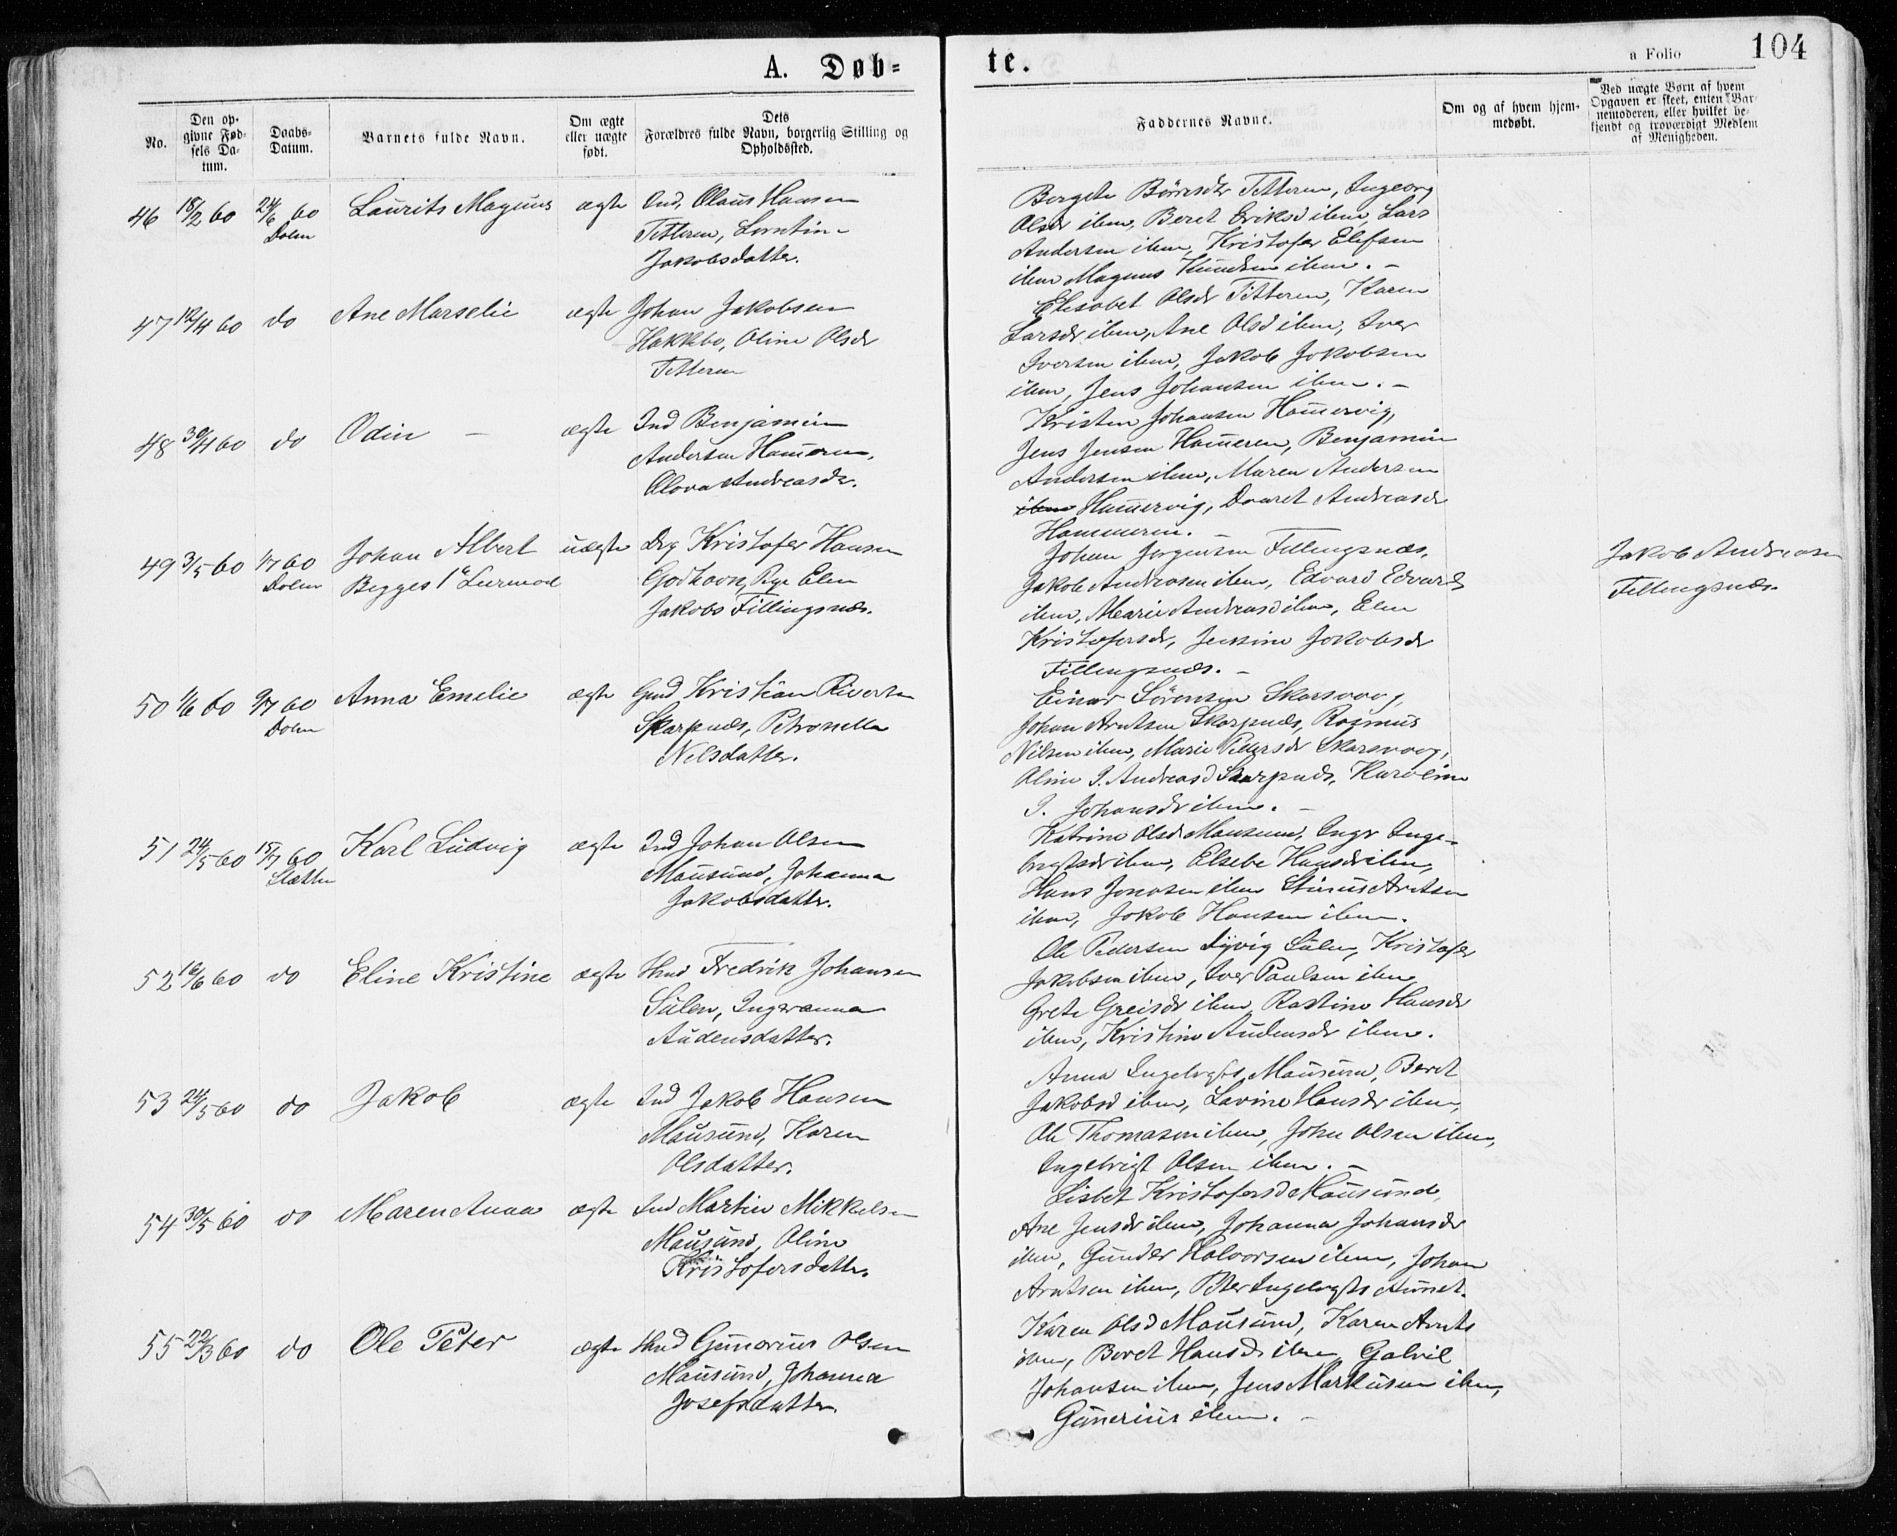 A. Døb=
te.
a Folio 104
No.
Den op-
givne Fød-
sels Da-
tum.
Daabs-
Datum.
Barnets fulde Navn.
Om ægte
eller uægte
født.
Dets
Forældres fulde Navn, borgerlig Stilling og
Opholdssted.
Faddernes Navne.
Om og af hvem hjem-
medøbt.
Ved uægte Børn af hvem
Opgaven er skeet, enten Bar-
nemoderen, eller hvilket be-
kjendt og troværdigt Medlem
af Menigheden.
46 18/2 60 24/6 60 Laurits Magnus ægte Ind. Olaus Hansen
Dolm
Titteren, Lorntine
Jakobsdatter.
Bergete Børresdtr Titteren, Ingeborg
Olsdr ibm, Beret Eriksd ibm, Lars
Andersen ibm, Kristofer Elefsen
ibm Magnus Knudsen ibm. -
47 12/4 60 do Ane Marselie ægte Johan Jakobsen
Hakkbo, Oline Olsdr
Titteren
Elisabet Olsdr Titteren, Karen
Larsdr ibm, Ane Olsd ibm, Iver
Iversen ibm, Jakob Jakobsen
ibm, Jens Johansen ibm. -
48 30/4 60 do Odin - ægte Ind Benjamin
Andersen Hameren,
Olava Andreasdr.
Kristen Johansen Hamervig,
Jens Jensen Hameren, Benjamin
Andersen ibm, Maren Andersen
ibm Hamervig, Andreasdr
Hammeren. -
49 3/5 60 1/7 60 Johan Albert uægte Drg Kristofer Hansen
Dolm
Begges 1e Leiermaal
Godhavn, Pge Elen
Jakobs Fillingsnæs.
Johan Jørgensen Fillingsnæs,
Jakob Andreasen ibm, Edvard Edvards
ibm, Marie Andreasd ibm, Elen
Kristofersdr, Jensine Jakobsdr
Fillingsnæs. -
Jakob Andreasen
Fillingsnæs.
50 1/6 60 9/7 60 Anna Emelie ægte Gmd Kristian Rivertsen
Dolm
Skarpnæs, Petronella
Nilsdatter.
Einar Sørensen Skarsvaag,
Johan Arntsen Skarpnæs, Rasmus
Nilsen ibm, Marie Pedersdr Skarsvaag,
Oline I. Andreasd Skarpnæs, Karoline
I. Johansdr ibm. -
51 24/5 60 15/7 60 Karl Ludvig ægte Ind Johan Olsen
Slætten
Mausund, Johanna
Jakobsdatter.
Katrine Olsd Mausund, Ingr Inge-
brigtsdr ibm, Elsebe Hansdr ibm,
Hans Jonasen ibm Arntsen
ibm, Jakob Hansen ibm.
52 16/6 60 do Eline Kristine ægte Hmd Fredrik Johansen
Sulen, Ingeranna
Audensdatter.
Ole Pedersen Dyvig Sulen, Kristofer
Jakobsen ibm, Iver Paulsen ibm
Grete Greisdr ibm, Rastine Hansdr
ibm, Kristine Audensdr ibm.
53 24/5 60 do Jakob ægte Ind Jakob Hansen
Mausund, Karen
Olsdatter.
Anna Ingebrgts Mausund, Beret
Jakobsd ibm, Lavine Hansdr ibm,
Ole Thomasen ibm, John Olsen ibm,
Ingebrigt Olsen ibm. -
54 30/5 60 do Maren Anna ægte Ind Martin Mikkelsen
Mausund, Oline
Kristofersdatter.
Lisbet Kristofersd Mausund,
Ane Jensdr ibm, Johanna Johansdr
ibm, Gunder Halvorsen ibm, Johan
Arntsen ibm, Peter Ingebrgts
55 22/3 60 do Ole Peter ægte Hmd Gunerius Olsen
Mausund, Johanna
Josefsdatter
Karen Olsd Mausund, Karen Arnts
ibm, Beret Hansdr ibm, Gabril
Johansen ibm, Jens Markusen ibm,
Gunerius ibm. -